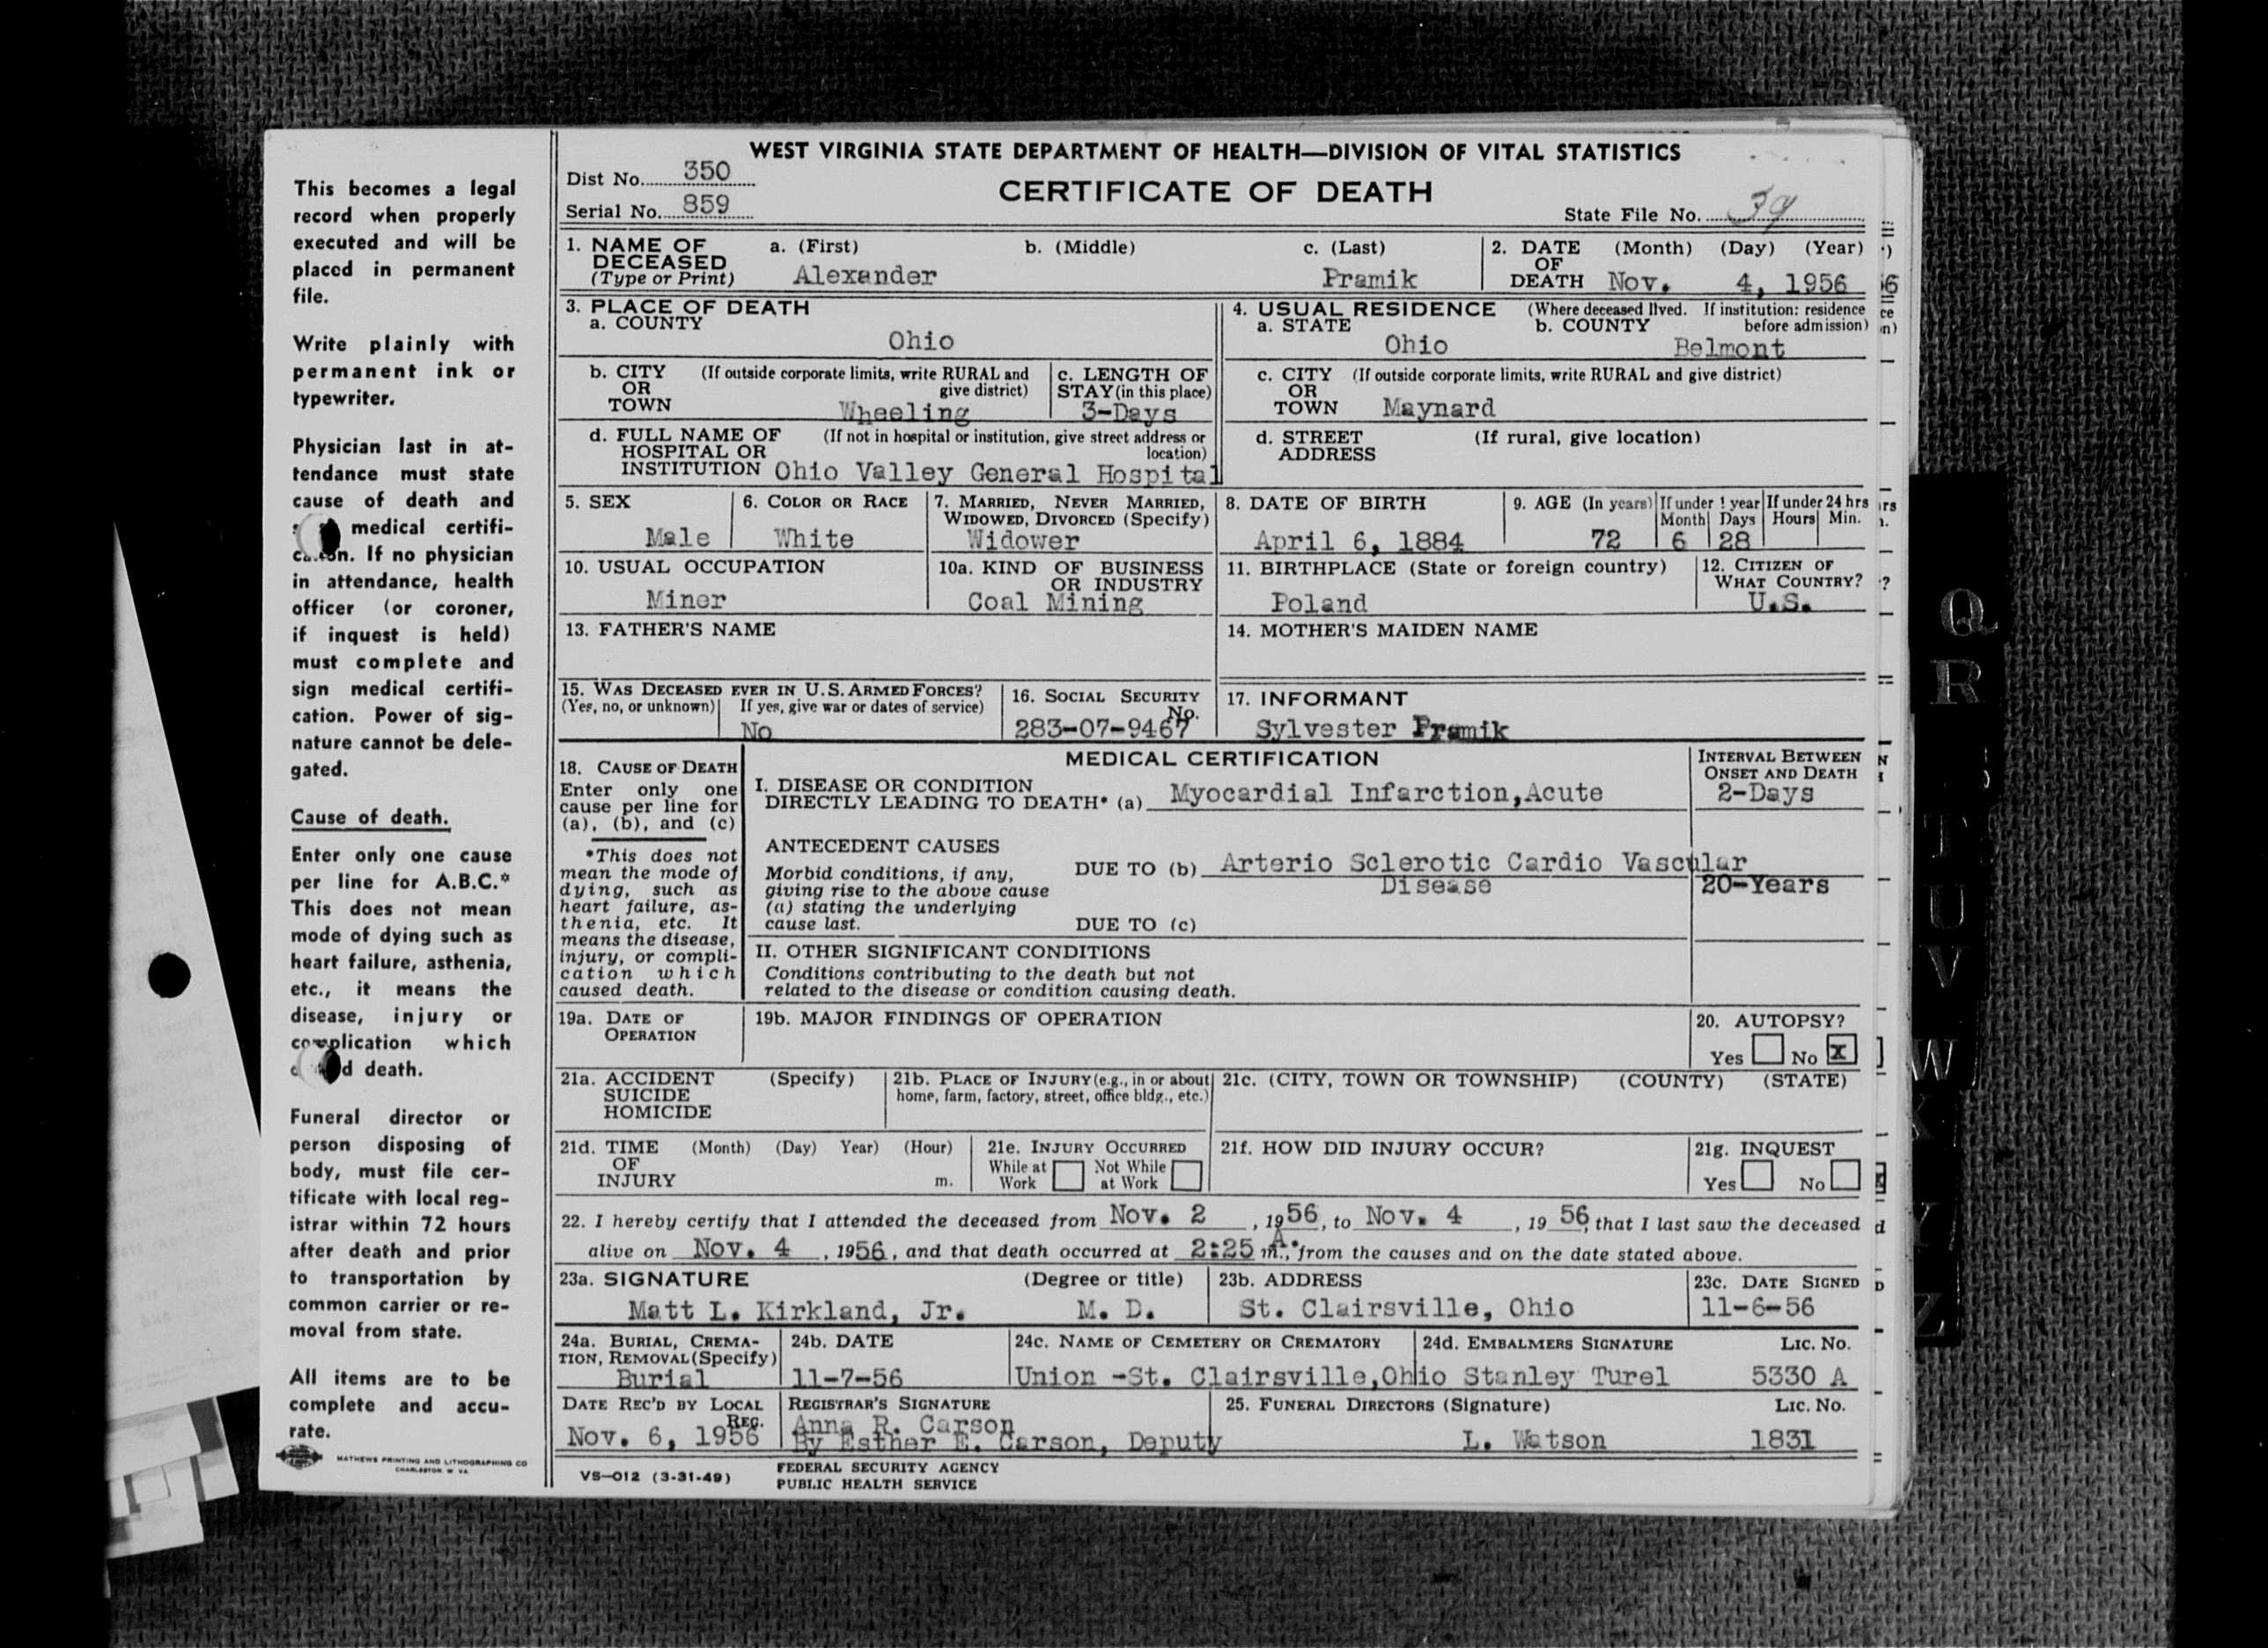 This becomes a legal
record when properly
executed and will be
placed in permanent
file.
Write plainly with
permanent ink or
typewriter.
Physician last in at-
tendance must state
cause of death and
medical certifi-
If no physician
in attendance, health
officer (or coroner,
if inquest is held)
must complete and
sign medical certifi-
cation. Power of sig-
nature cannot be dele-
gated.
Cause of death.
Enter only one cause
per line for A.B.C.*
This does not mean
mode of dying such as
heart failure, asthenia,
etc., it means the
disease, injury or
complication which
death.
Funeral director or
person disposing of
body, must file cer-
tificate with local reg-
istrar within 72 hours
after death and prior
to transportation by
common carrier or re-
moval from state.
All items are to be
complete and accu-
rate.
MATHEWS PRINTING AND LITHOGRAPHING CO
CHARLESTON W VA
WEST VIRGINIA STATE DEPARTMENT OF HEALTH—DIVISION OF VITAL STATISTICS
Dist No. 350
CERTIFICATE OF DEATH
Serial No. 859
State File No. 39
1. NAME OF DECEASED (Type or Print) a. (First) b. (Middle) c. (Last)
Alexander Pramik
2. DATE OF DEATH (Month) (Day) (Year)
Nov. 4, 1956
3. PLACE OF DEATH
a. COUNTY
Ohio
4. USUAL RESIDENCE (Where deceased lived. If institution: residence before admission)
a. STATE b. COUNTY
Ohio Belmont
b. CITY OR TOWN (If outside corporate limits, write RURAL and give district)
Wheeling
c. LENGTH OF STAY (in this place)
3-Days
c. CITY OR TOWN (If outside corporate limits, write RURAL and give district)
Maynard
d. FULL NAME OF HOSPITAL OR INSTITUTION (If not in hospital or institution, give street address or location)
Ohio Valley General Hospital
d. STREET ADDRESS (If rural, give location)
5. SEX
Male
6. COLOR OR RACE
White
7. MARRIED, NEVER MARRIED, WIDOWED, DIVORCED (Specify)
Widower
8. DATE OF BIRTH
April 6, 1884
9. AGE (In years) If under 1 year If under 24 hrs
Month Days Hours Min.
72 6 28
10. USUAL OCCUPATION
Miner
10a. KIND OF BUSINESS OR INDUSTRY
Coal Mining
11. BIRTHPLACE (State or foreign country)
Poland
12. CITIZEN OF WHAT COUNTRY?
U.S.
13. FATHER'S NAME
14. MOTHER'S MAIDEN NAME
15. WAS DECEASED EVER IN U.S. ARMED FORCES?
(Yes, no, or unknown) If yes, give war or dates of service)
No
16. SOCIAL SECURITY No.
283-07-9467
17. INFORMANT
Sylvester Pramik
18. CAUSE OF DEATH
Enter only one
cause per line for
(a), (b), and (c)
*This does not
mean the mode of
dying, such as
heart failure, as-
thenia, etc. It
means the disease,
injury, or compli-
cation which
caused death.
MEDICAL CERTIFICATION
I. DISEASE OR CONDITION
DIRECTLY LEADING TO DEATH* (a) Myocardial Infarction,Acute
INTERVAL BETWEEN
ONSET AND DEATH
2-Days
ANTECEDENT CAUSES
Morbid conditions, if any,
giving rise to the above cause
(a) stating the underlying
cause last.
DUE TO (b) Arterio Sclerotic Cardio Vascular
Disease 20-Years
DUE TO (c)
II. OTHER SIGNIFICANT CONDITIONS
Conditions contributing to the death but not
related to the disease or condition causing death.
19a. DATE OF OPERATION
19b. MAJOR FINDINGS OF OPERATION
20. AUTOPSY?
Yes No X
21a. ACCIDENT SUICIDE HOMICIDE (Specify)
21b. PLACE OF INJURY (e.g., in or about home, farm, factory, street, office bldg., etc.)
21c. (CITY, TOWN OR TOWNSHIP) (COUNTY) (STATE)
21d. TIME OF INJURY (Month) (Day) Year) (Hour) m.
21e. INJURY OCCURRED
While at Work Not While at Work
21f. HOW DID INJURY OCCUR?
21g. INQUEST
Yes No
22. I hereby certify that I attended the deceased from Nov. 2, 1956, to Nov. 4, 19 56, that I last saw the deceased
alive on Nov. 4, 1956, and that death occurred at 2:25 A m., from the causes and on the date stated above.
23a. SIGNATURE (Degree or title)
Matt L. Kirkland, Jr. M. D.
23b. ADDRESS
St. Clairsville, Ohio
23c. DATE SIGNED
11-6-56
24a. BURIAL, CREMATION, REMOVAL (Specify)
Burial
24b. DATE
11-7-56
24c. NAME OF CEMETERY OR CREMATORY
Union -St. Clairsville,Ohio
24d. EMBALMERS SIGNATURE LIC. No.
Stanley Turel 5330 A
DATE REC'D BY LOCAL REG.
Nov. 6, 1956
REGISTRAR'S SIGNATURE
Anna R. Carson
By Esther E. Carson, Deputy
25. FUNERAL DIRECTORS (Signature) LIC. No.
L. Watson 1831
VS—012 (3-31-49)
FEDERAL SECURITY AGENCY
PUBLIC HEALTH SERVICE
Q
R
T
U
V
W
X
Y
Z